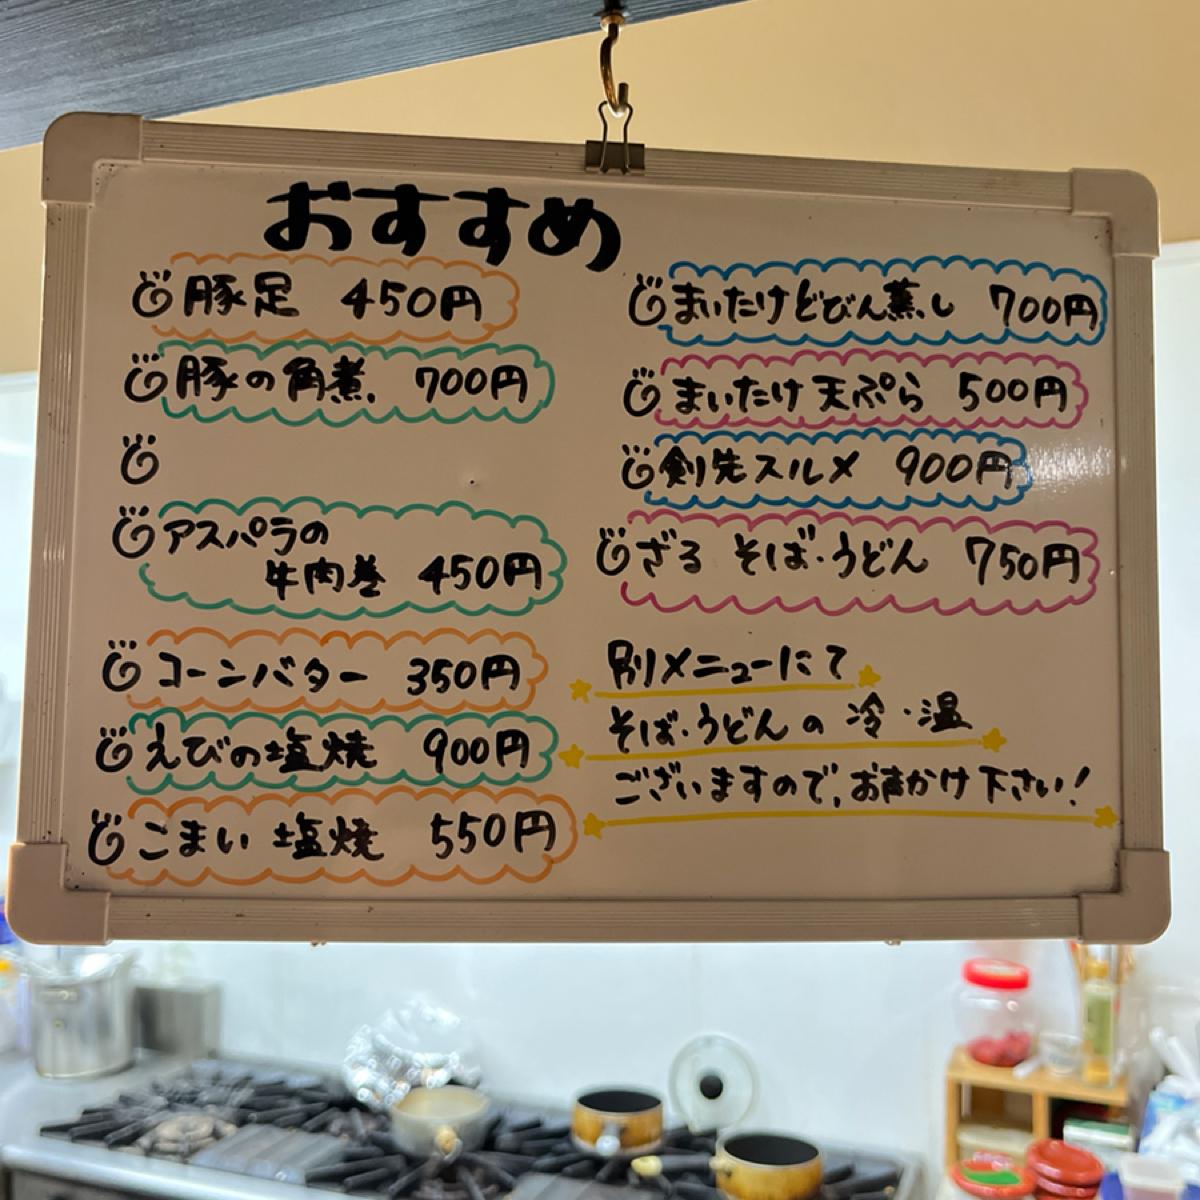 おすすめ
豚足 450円
豚の角煮 700円
アスパラの
牛肉巻 450円
コーンバター 350円
えびの塩焼 900円
こまい 塩焼 550円
まいたけどびん蒸し 700円
まいたけ 天ぷら 500円
剣先スルメ 900円
ざる そば・うどん 750円
別メニューにて
そば・うどんの 冷・温
ございますので、お声かけ下さい!